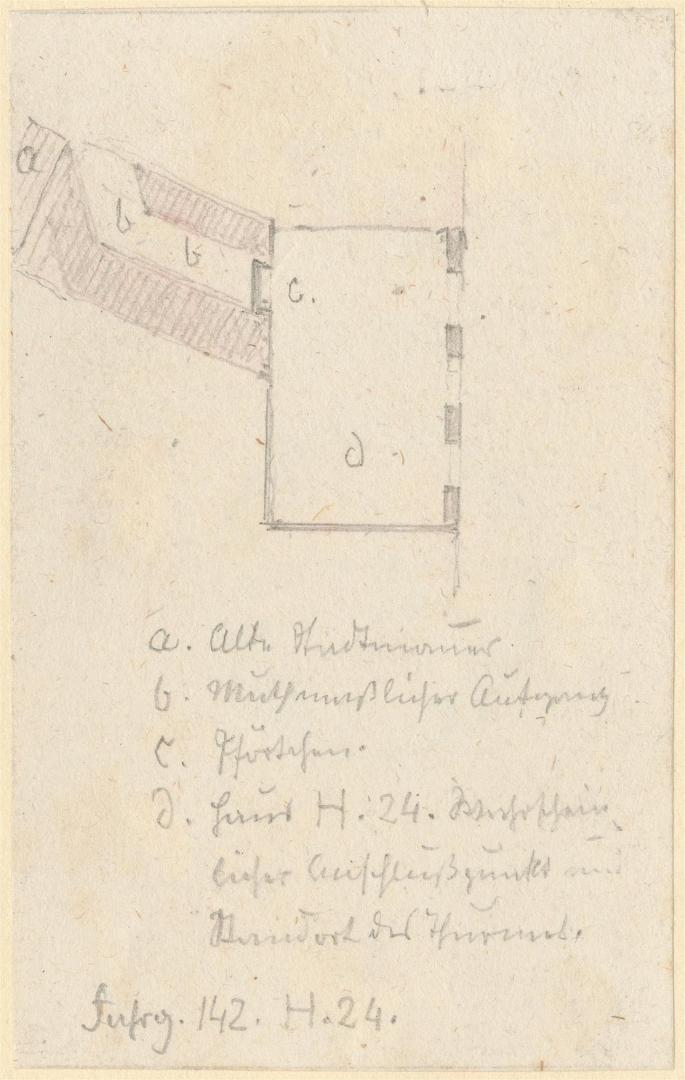 a
b
b
c.
d
a. Alte Stadtmauer
b. Muthmaßlicher Aufgang
c. Pförtchen.
d. Haus H. 24. Wahrschein-
licher Anschlußpunkt und
Standort des Thurmes.
Fahrg. 142. H. 24.